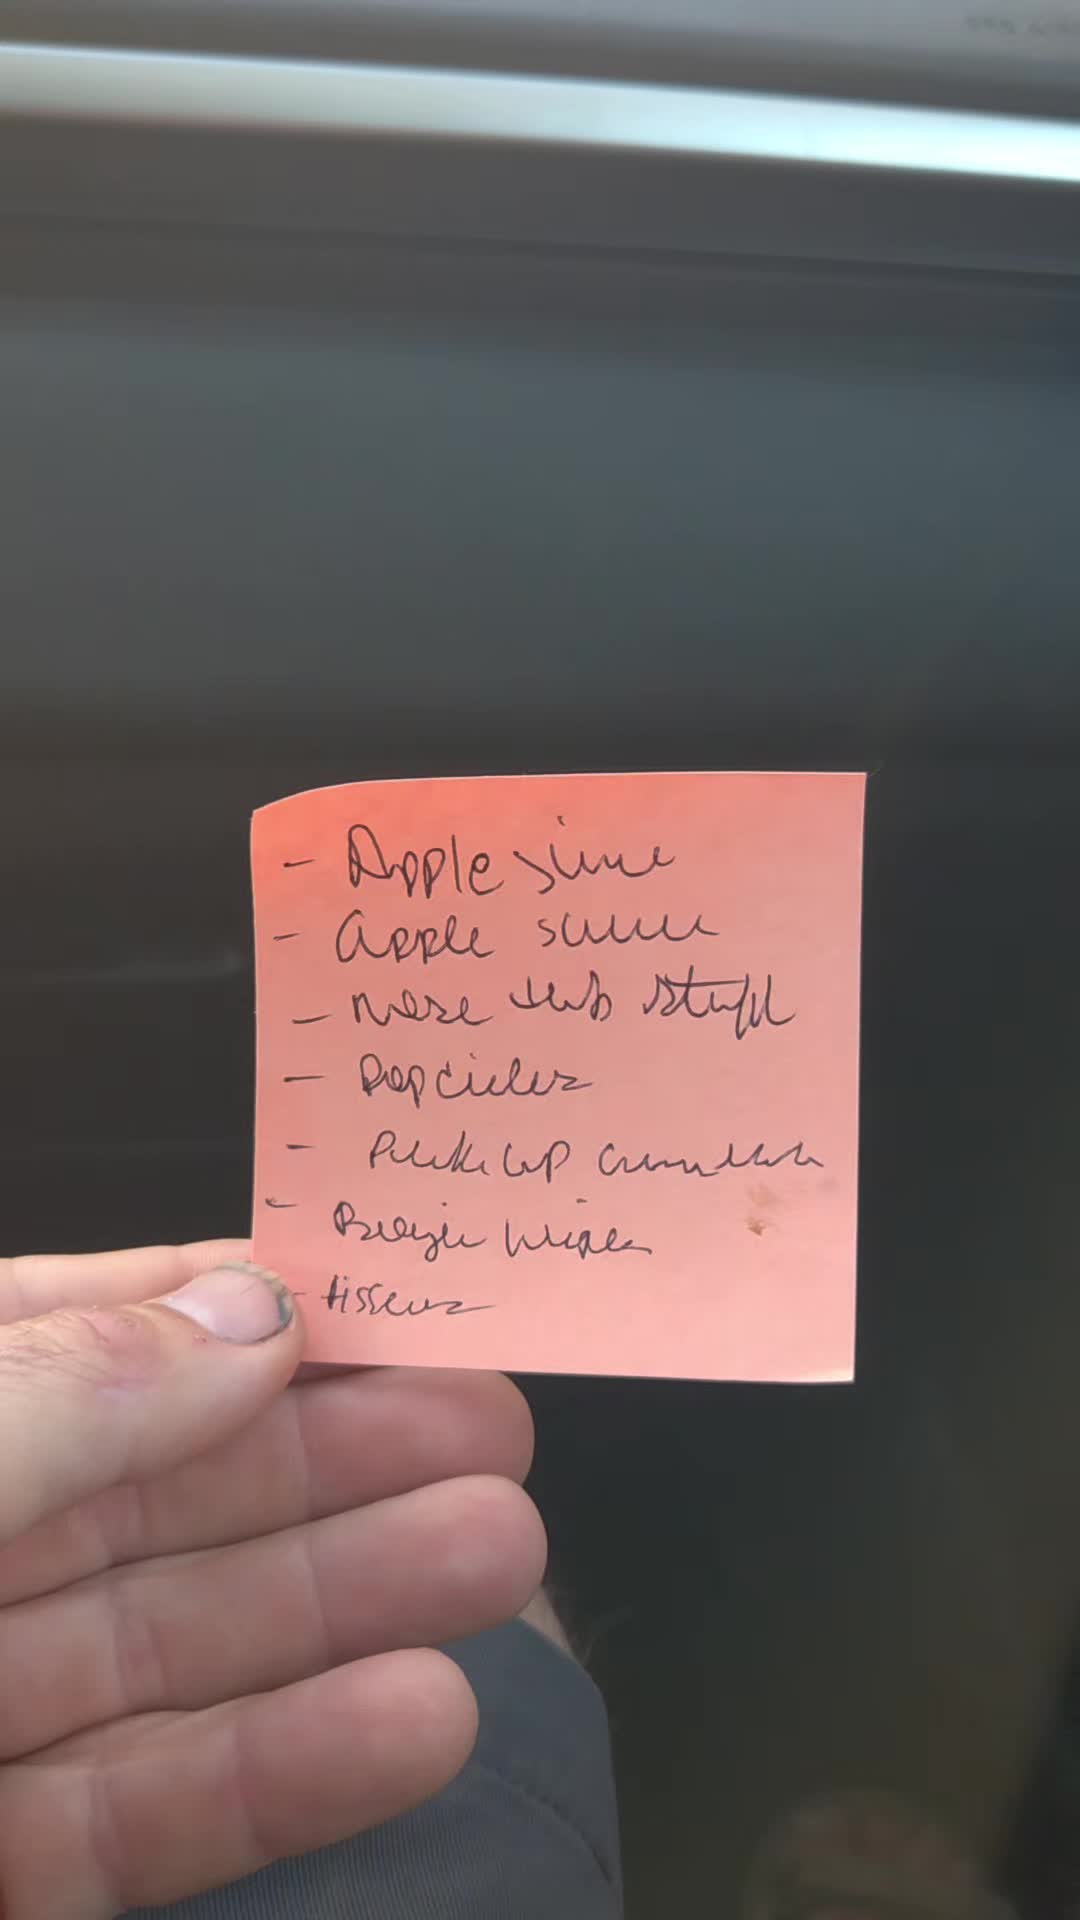 - Apple juice
- apple sauce
- nose tub stuff
- Popcicles
- Pick up
- Boogie wipes
- tissues